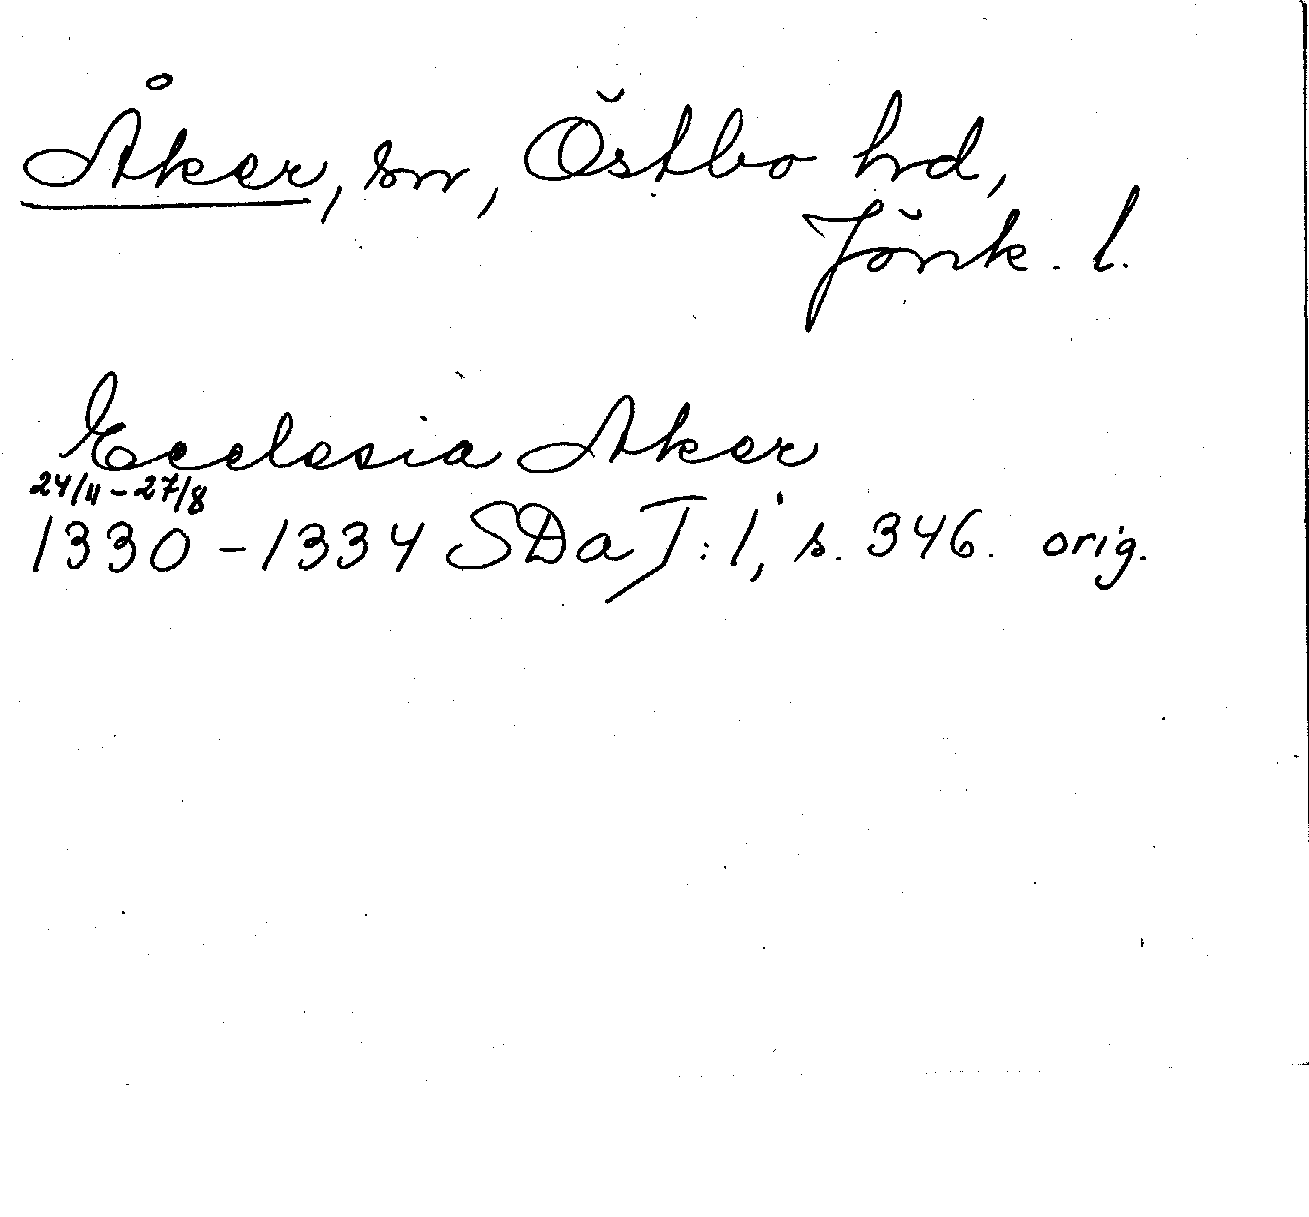 Åker, sn, Östbo hd,
Jönk. l.
Ecclesia Aker
24/11 - 27/8
1330 - 1334 SDa J: 1, s. 346. orig.